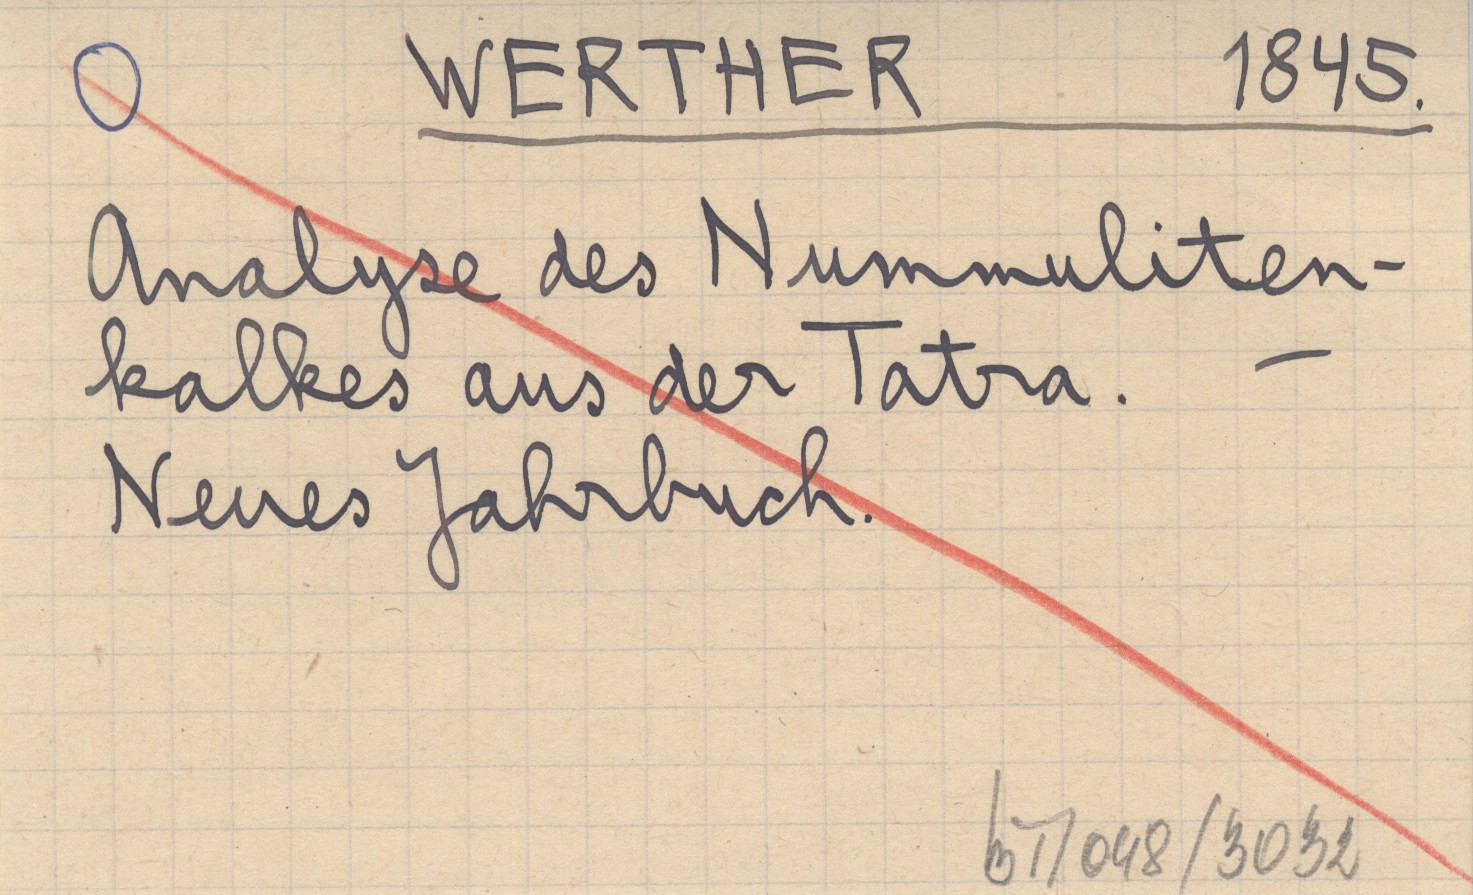 WERTHER 1845.
Analyse des Nummuliten-
kalkes aus der Tatra. –
Neues Jahrbuch.
048/3032